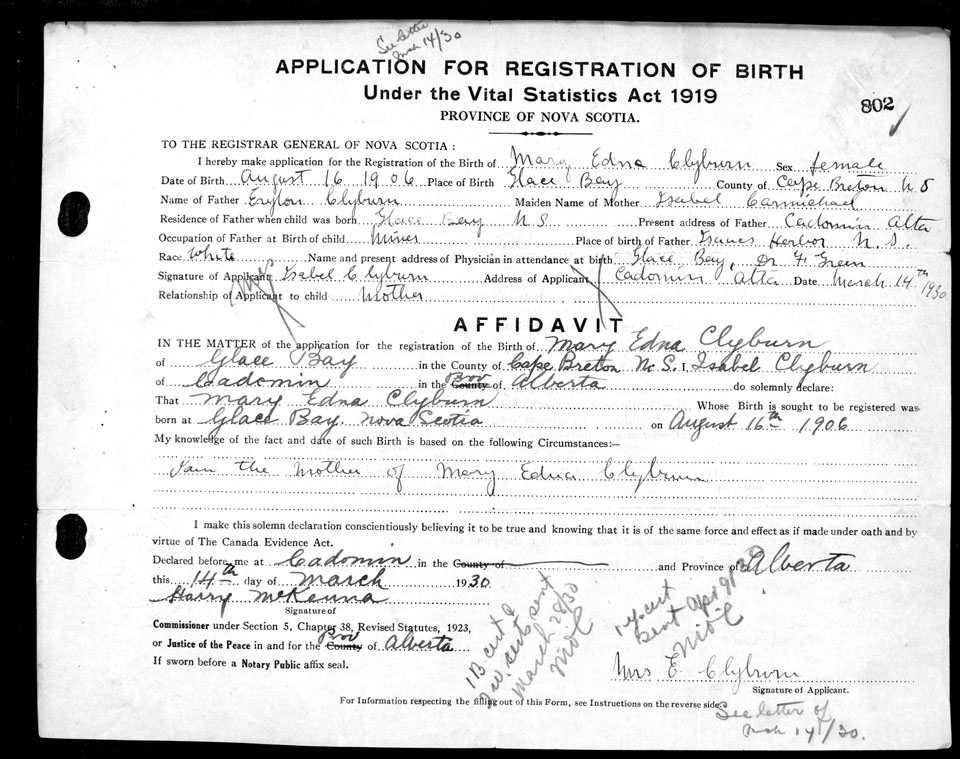 See letter
Mch 14/30
APPLICATION FOR REGISTRATION OF BIRTH
Under the Vital Statistics Act 1919
PROVINCE OF NOVA SCOTIA.
802
TO THE REGISTRAR GENERAL OF NOVA SCOTIA :
I hereby make application for the Registration of the Birth of Mary Edna Clyburn Sex female
Date of Birth August 16 1906 Place of Birth Glace Bay County of Cape Breton N S
Name of Father Clyburn Maiden Name of Mother Isabel Carmichael
Residence of Father when child was born Glace Bay N S Present address of Father Cadomin Alta
Occupation of Father at Birth of child Miner Place of birth of Father Isaacs Herbor N. S.
Race White Name and present address of Physician in attendance at birth Glace Bay, Dr Green
Signature of Applicant Isabel Clyburn Address of Applicant Cadomin Alta Date March 14th 1930
Relationship of Applicant to child Mother
AFFIDAVIT
IN THE MATTER of the application for the registration of the Birth of Mary Edna Clyburn
of Glace Bay in the County of Cape Breton N. S. I, Isabel Clyburn
of Cadomin in the County Prov of Alberta do solemnly declare:
That Mary Edna Clyburn Whose Birth is sought to be registered was
born at Glace Bay. Nova Scotia on August 16th 1906
My knowledge of the fact and date of such Birth is based on the following Circumstances:—
I am the Mother of Mary Edna Clyburn
I make this solemn declaration conscientiously believing it to be true and knowing that it is of the same force and effect as if made under oath and by
virtue of The Canada Evidence Act.
Declared before me at Cadomin in the County of and Province of Alberta
this 14th day of March 1930
Harry McKenna
Signature of
Commissioner under Section 5, Chapter 38, Revised Statutes, 1923,
or Justice of the Peace in and for the County Prov of Alberta
If sworn before a Notary Public affix seal.
1 B cert &
certs sent
March 28/30
sent Apr
Mrs E. Clyburn
Signature of Applicant.
For Information respecting the filling out of this Form, see Instructions on the reverse side.
See letter of
Mch 14/30.